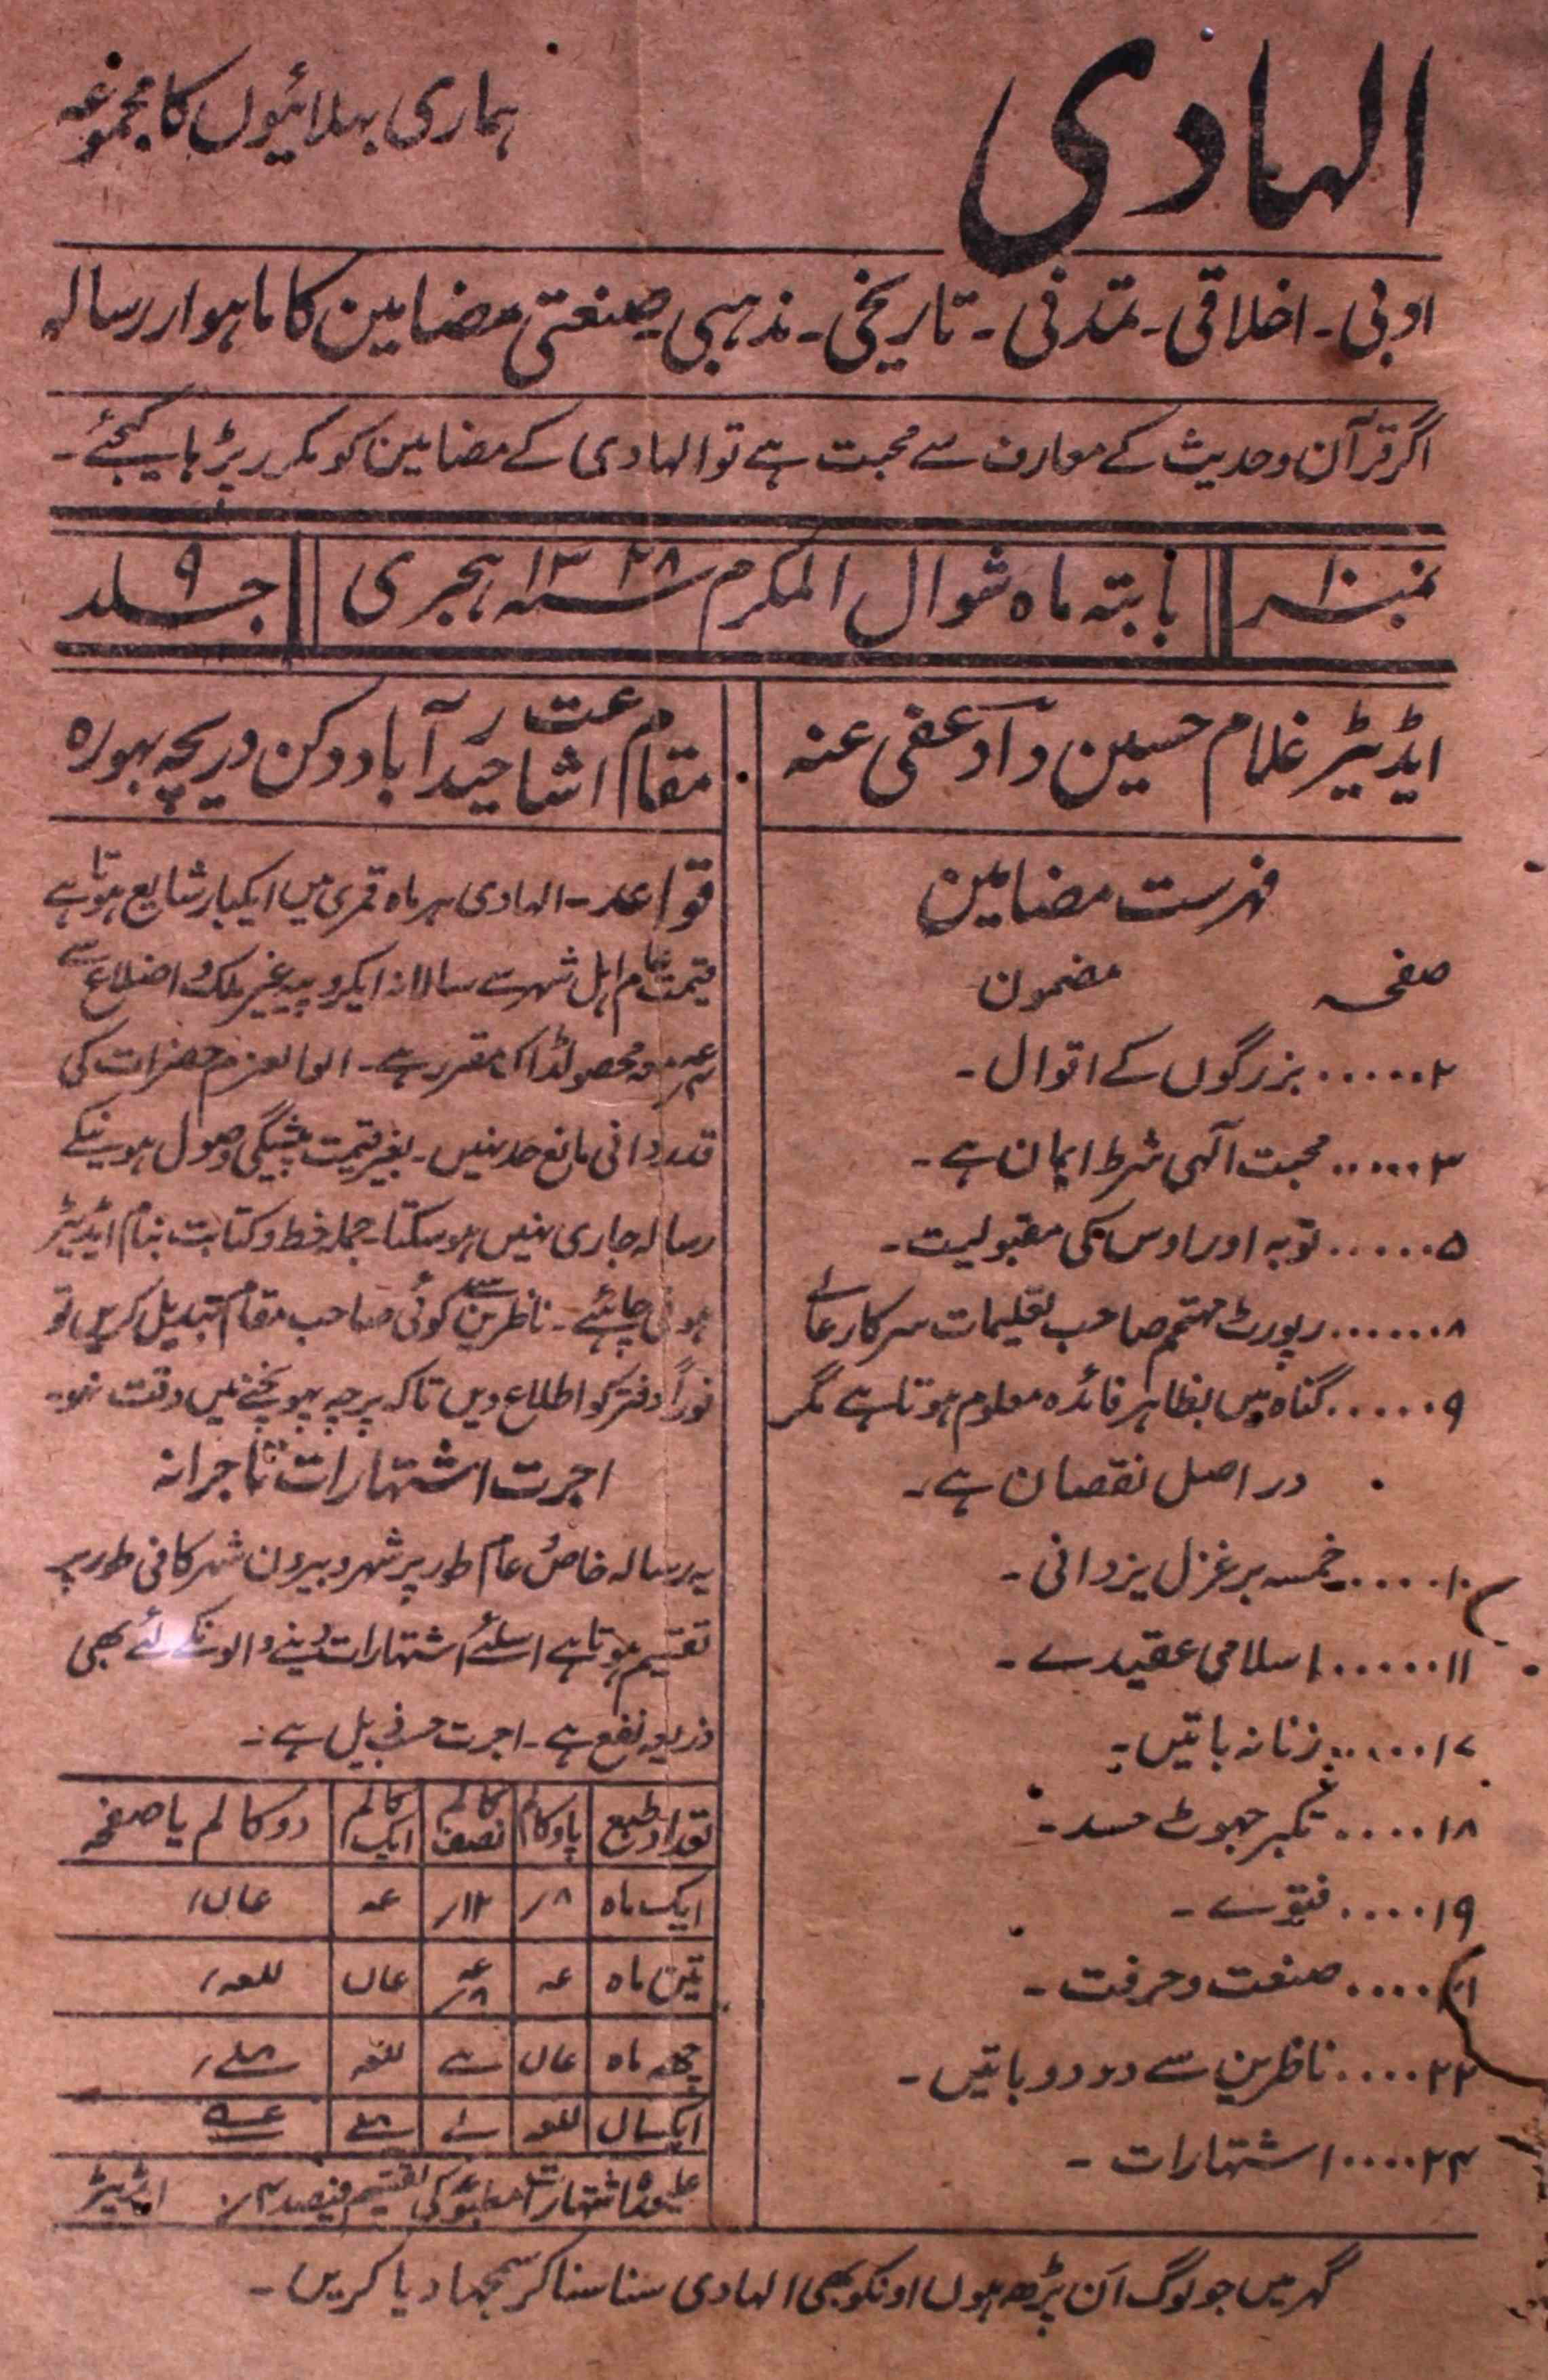 الہادی
ہماری بہلائیوں کا مجموعہ
ادبی۔ اخلاقی۔ تمدنی۔ تاریخی۔ مذہبی صنعتی مضامین کا ماہوار رسالہ
اگر قرآن و حدیث کے معارف سے محبت ہے تو الہادی کے مضامین کو مکرر پڑہا کیجئے۔
نمبر ۱۰
بابتہ ماہ شوال المکرم ۱۳۲۸ سنہ ہجری
جلد ۹
ایڈیٹر غلام حسین داؔد عفی عنہ
فہرست مضامین
صفحہ مضمون
۲...... بزرگوں کے اقوال۔
۳...... محبت آلہی شرط ایمان ہے۔
۵...... توبہ اور اوس کی مقبولیت۔
۸...... رپورٹ مہتمم صاحب تعلیمات سرکار عالی
۹...... گناہ میں بظاہر فائدہ معلوم ہوتا ہے مگر
در اصل نقصان ہے۔
۱۰..... خمسہ بر غزل یزدانی۔
۱۱...... اسلامی عقیدے۔
۱۷...... زنانہ باتیں۔
۱۸..... تکبر جہوٹ حسد۔
۱۹.... فتوے۔
۲۱.... صنعت و حرفت۔
۲۲.... ناظرین سے دو دو باتیں۔
۲۴.... اشتہارات۔
مقام اشاعت حیدرآباد دکن دریچہ بہورہ
قواعد۔ الہادی ہر ماہ قمری میں ایکبار شایع ہوتا ہے
قیمت عام اہل شہر سے سالانہ ایکروپیہ غیر ملک و اضلاع سے
معہ محصولڈاک مقرر ہے۔ الوالعزم حضرات کی
قدردانی مانع حد نہیں۔ بغیر قیمت پیشگی وصول ہونیکے
رسالہ جاری نہیں ہو سکتا۔ جملہ خط و کتابت بنام ایڈیٹر
ہونی چاہئے۔ ناظرین سے کوئی صاحب مقام تبدیل کریں تو
فوراً دفتر کو اطلاع دیں تاکہ پرچہ پہونچنے میں دقت نہو۔
اجرت اشتہارات تاجرانہ
یہ رسالہ خاص و عام طور پر شہر و بیرون شہر کافی طور پر
تقسیم ہوتا ہے اسلئے اشتہارات دینے والونکے لئے بھی
ذریعہ نفع ہے۔ اجرت حسب ذیل ہے۔
تعداد طبع پاو کالم نصف کالم ایک کالم دو کالم یا صفحہ
ایک ماہ ۸/ ۱۲/ عہ عاں/
تین ماہ عہ عہ ۸/ عاں للعہ/
چھہ ماہ عاں سے للعہ
ایکسال للعہ
علیحدہ اشتہارات مطبوعہ کی تقسیم فیصد ۴/ ایڈیٹر
گہر میں جو لوگ اَن پڑھ ہوں اونکو بھی الہادی سنا سنا کر سمجہا دیا کریں۔